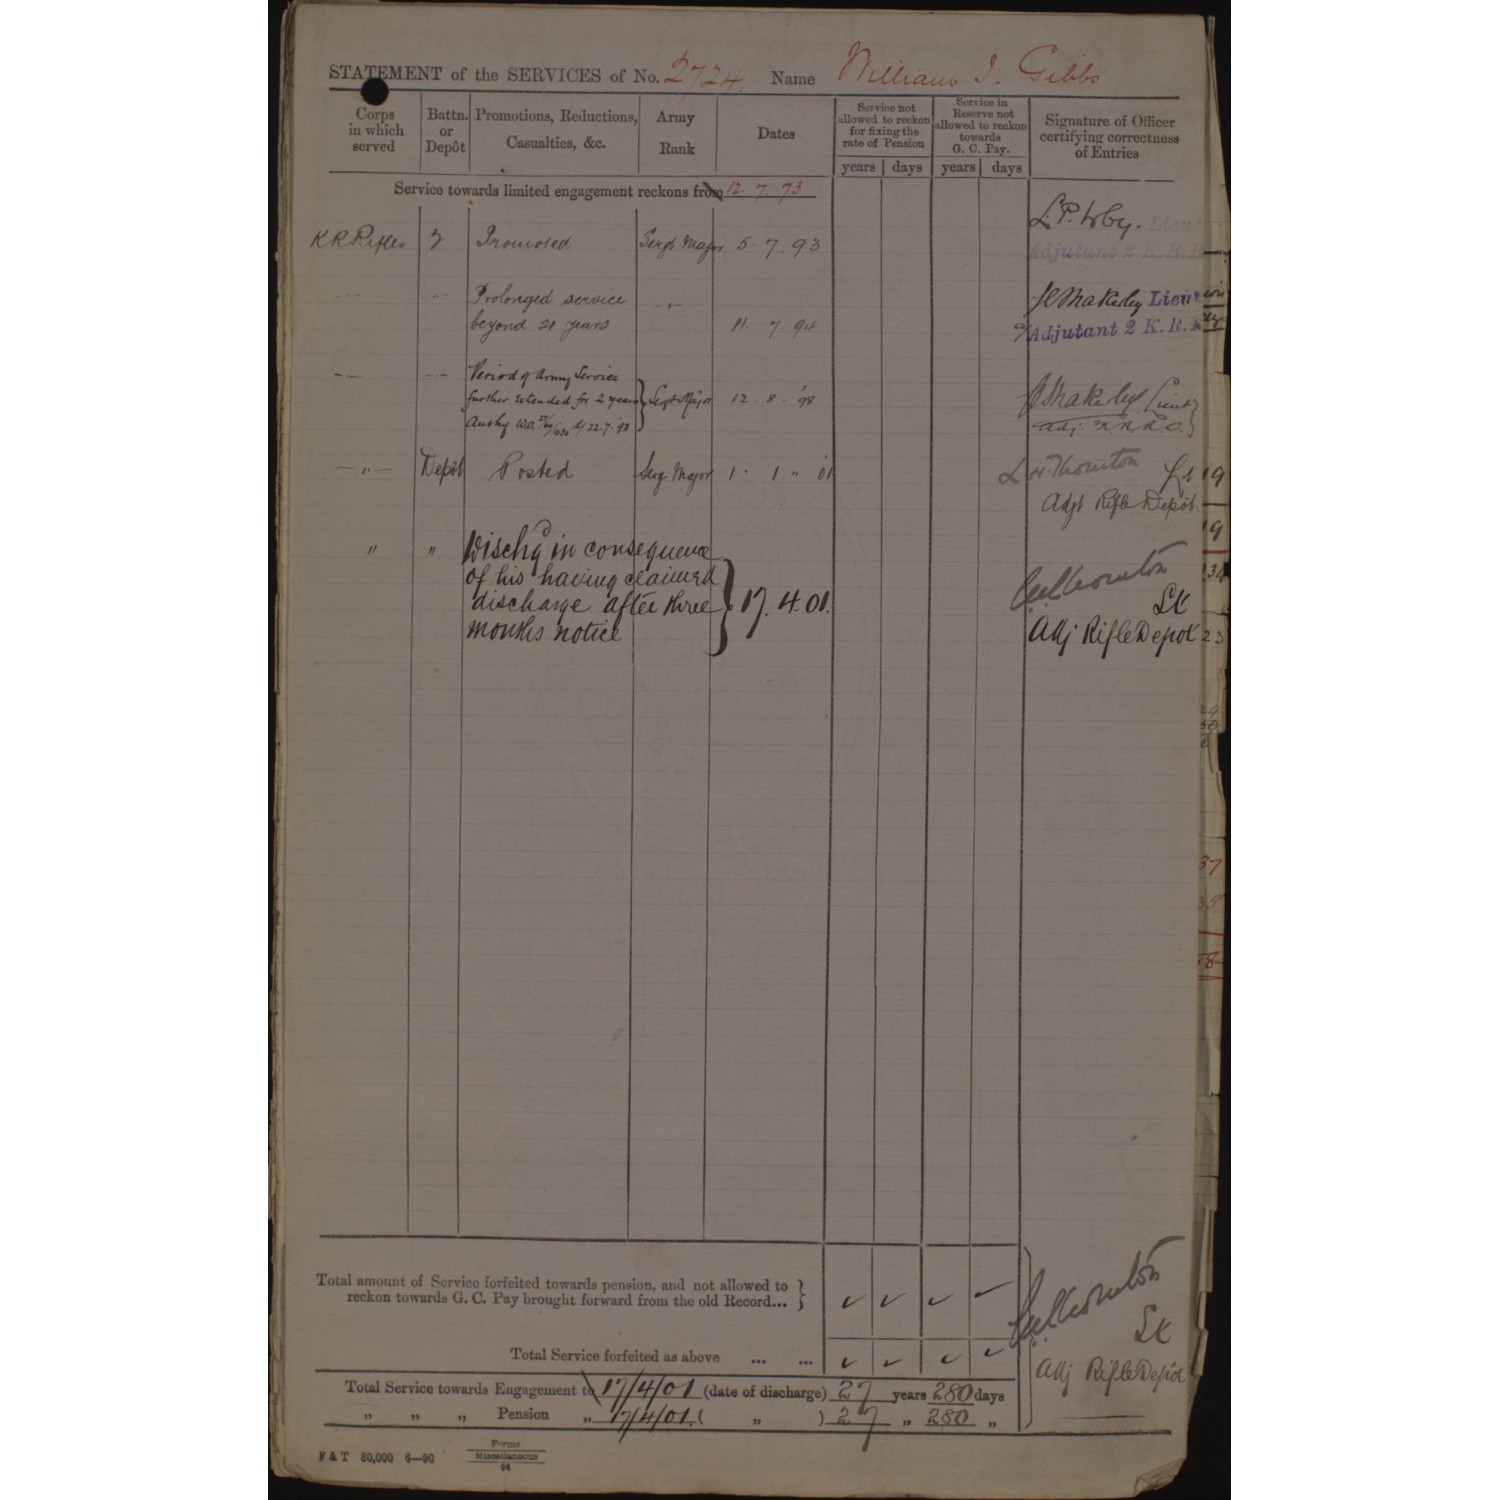 STATEMENT of the SERVICES of No. 2724 Name William J. Gibbs
Corps in which served
Battn. or Depôt
Promotions, Reductions, Casualties, &c.
Army Rank
Dates
Service not allowed to reckon for fixing the rate of Pension
Service in Reserve not allowed to reckon towards G. C. Pay.
Signature of Officer certifying correctness of Entries
years days years days
Service towards limited engagement reckons from 12. 7. 73
K R Rifles 2 Promoted Sergt Major 5. 7. 93
Lieut
Adjutant 2 K. R. R
Prolonged service
beyond 21 years 11. 7. 94
Lieut
Adjutant 2 K. R. R
Period of Army Service
further extended for 2 years Sergt Major 12. 8. '98
Lieut
Depôt Posted Serg Major 1 1 '01
Thornton Lt
Adjt Rifle Depôt
" " Dischd in consequence
of his having claimed
discharge after three
months notice } 17. 4. 01.
Thornton
Lt
Adj Rifle Depot
Total amount of Service forfeited towards pension, and not allowed to
reckon towards G. C. Pay brought forward from the old Record...
Thornton
Lt
Adj Rifle Depôt
Total Service forfeited as above ... ...
Total Service towards Engagement to 17/4/01 (date of discharge) 27 years 280 days
„ „ „ Pension „ 17/4/01. ( „ ) 27 „ 280 „
F & T 80,000 6—90
Forms
Miscellaneous
94